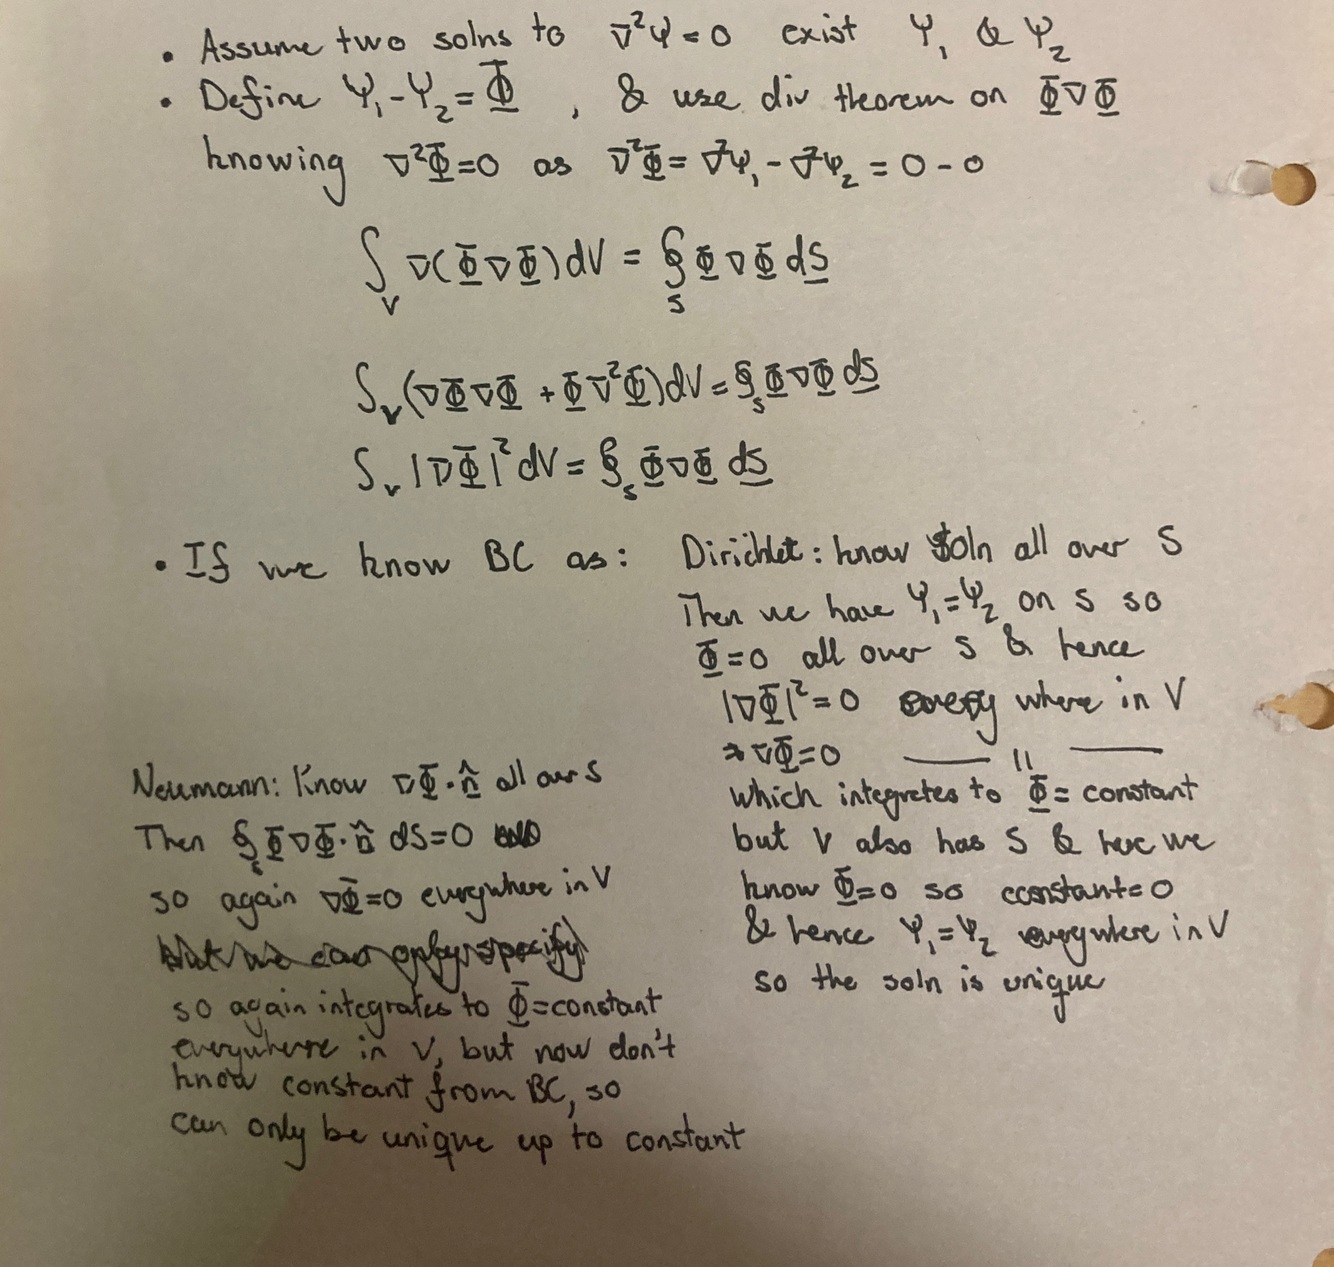 • Assume two solns to ∇²Ψ=0 exist Ψ₁ & Ψ₂
• Define Ψ₁-Ψ₂=Φ , & use div theorem on Φ∇Φ
knowing ∇²Φ=0 as ∇²Φ=∇²Ψ₁-∇²Ψ₂=0-0
∫_V ∇(Φ∇Φ)dV = ∮_S Φ∇Φ dS
∫_V(∇Φ∇Φ + Φ∇²Φ)dV=∮_SΦ∇Φ dS
∫_V|∇Φ|²dV=∮_S Φ∇Φ dS
• If we know BC as: Dirichlet: know soln all over S
Then we have Ψ₁=Ψ₂ on S so
Φ=0 all over S & hence
|∇Φ|²=0 every where in V
⇒∇Φ=0 —— || ——
which integrates to Φ=constant
but V also has S & here we
know Φ=0 so constant=0
& hence Ψ₁=Ψ₂ everywhere in V
so the soln is unique
Neumann: Know ∇Φ·n̂ all over S
Then ∮_SΦ∇Φ·n̂ dS=0
so again ∇Φ=0 everywhere in V
but we can only specify
so again integrates to Φ=constant
everywhere in V, but now don't
know constant from BC, so
can only be unique up to constant